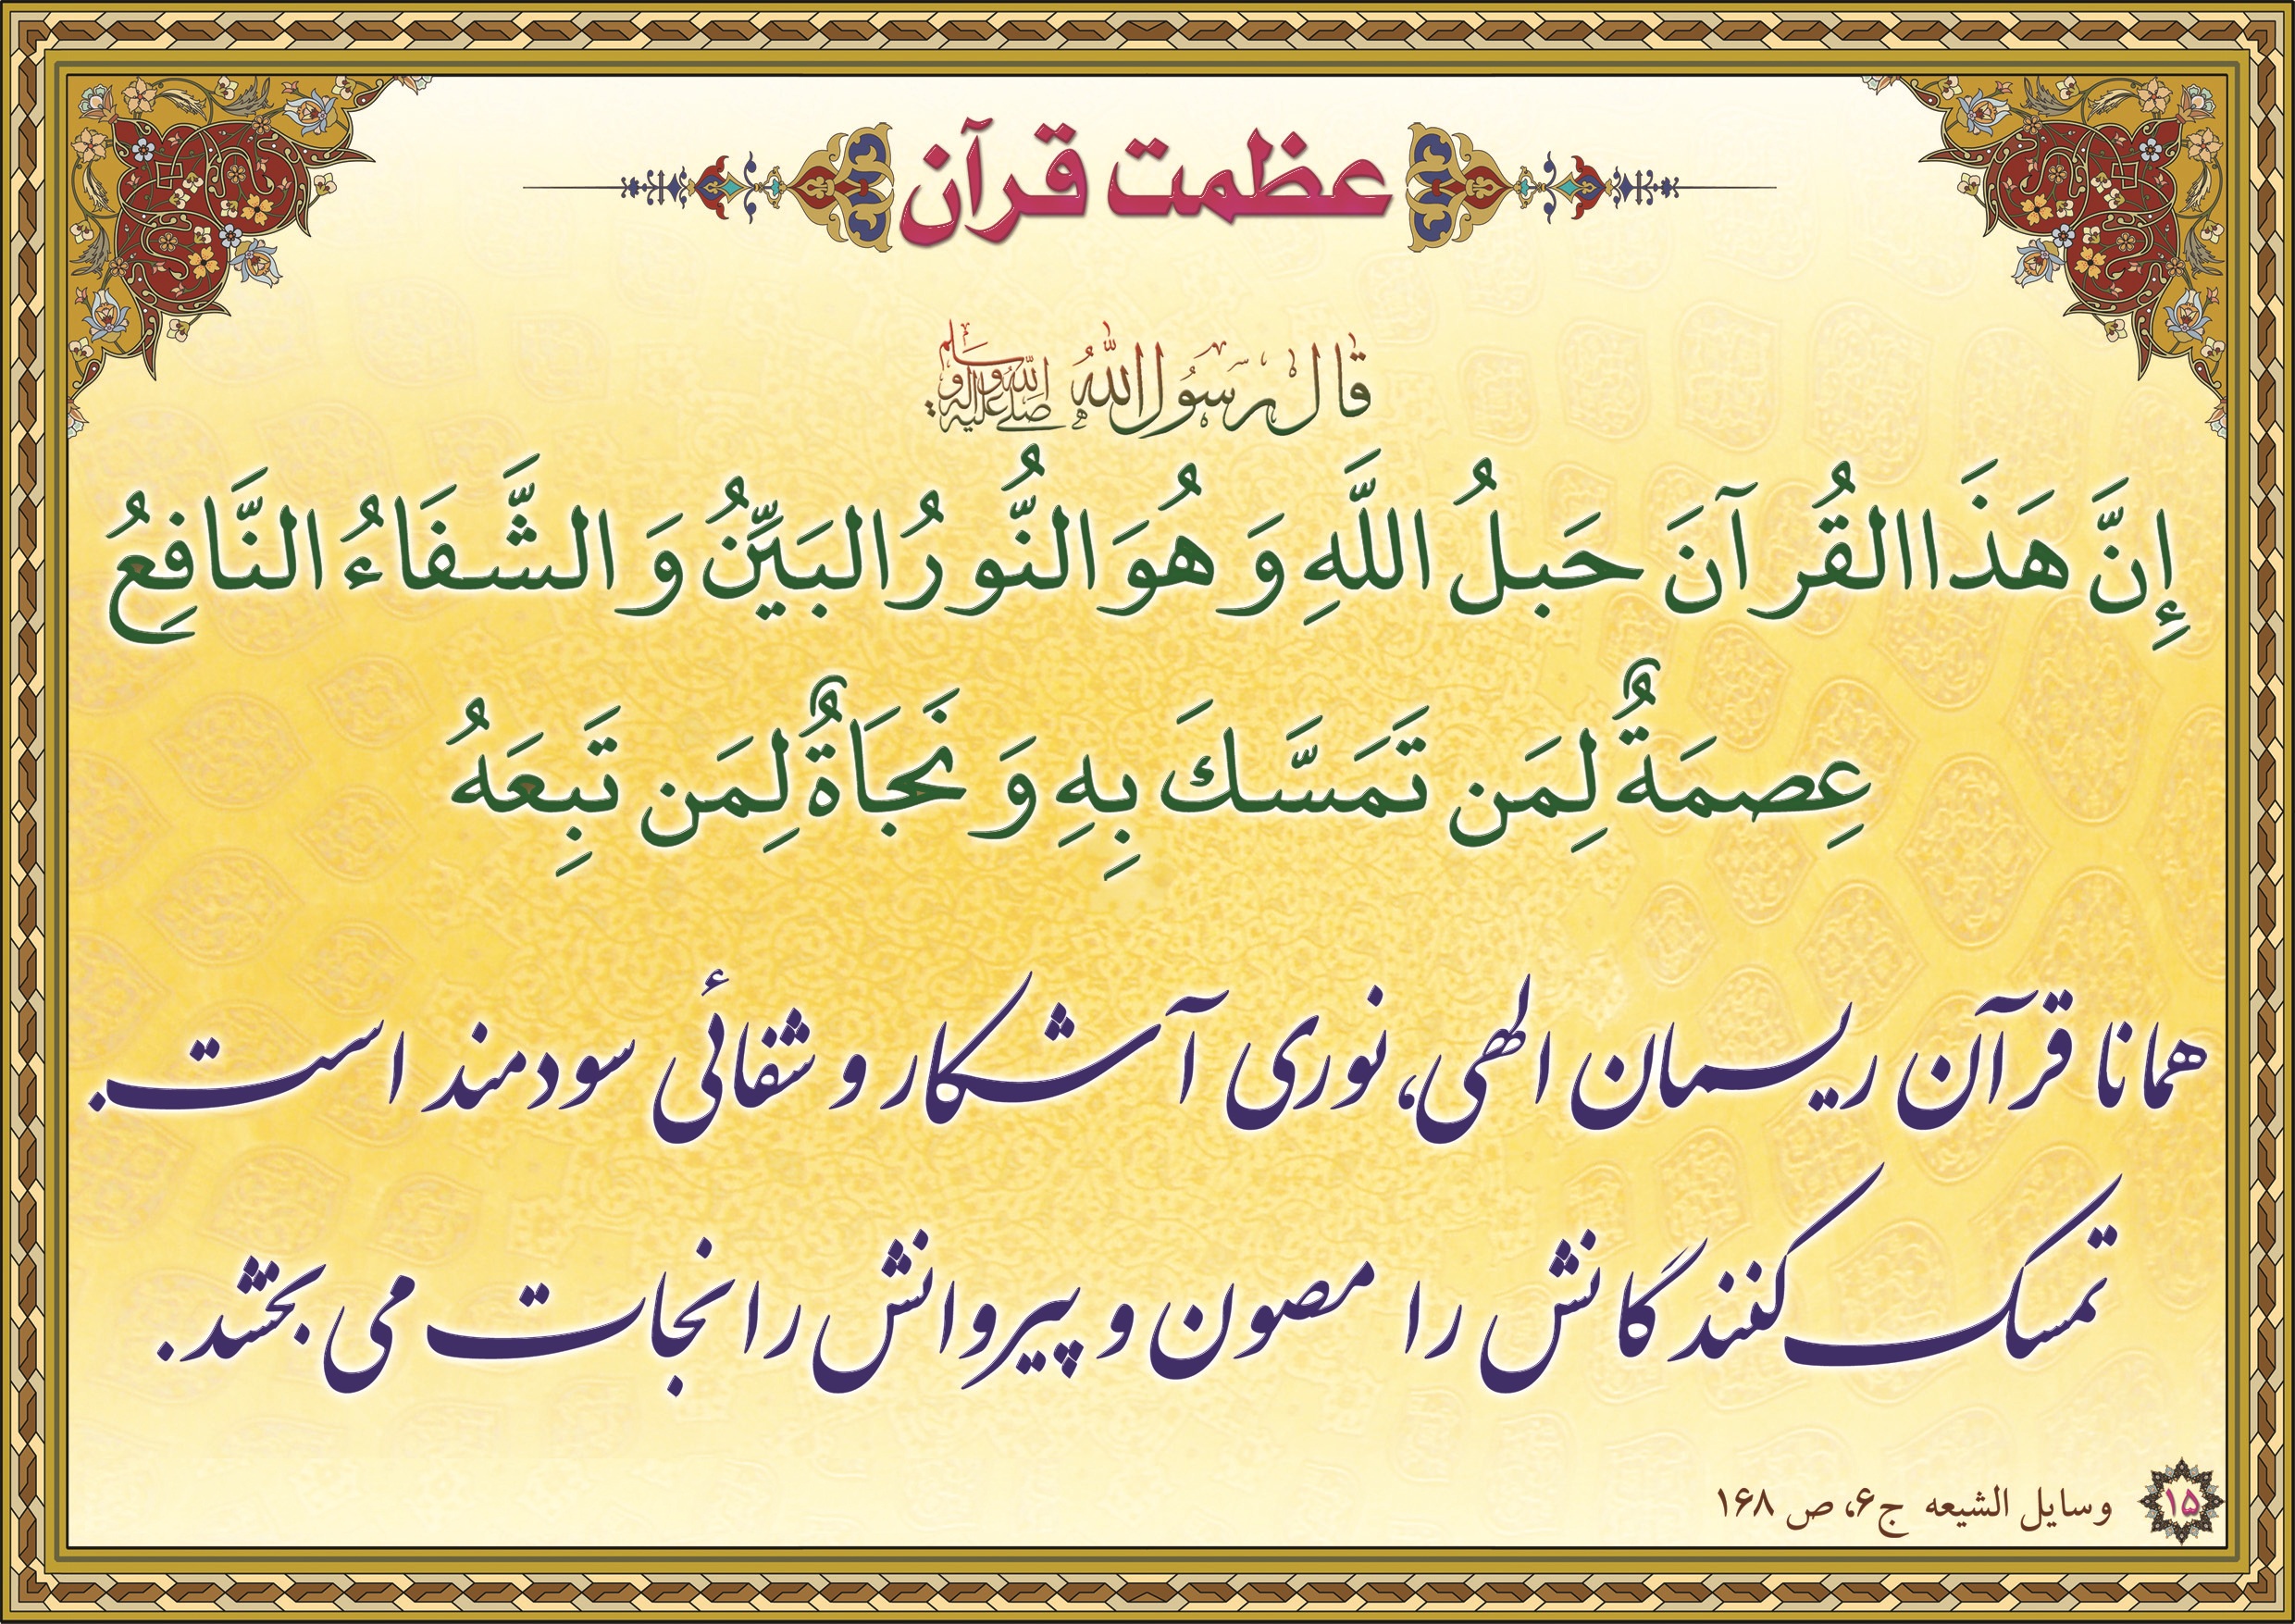 عظمت قرآن
قال رسول الله صلی الله علیه و آله و سلم
إِنَّ هَذَا القُرآنَ حَبلُ اللَّهِ وَ هُوَ النُّورُ البَيِّنُ وَ الشَّفَاءُ النَّافِعُ
عِصمَةٌ لِمَن تَمَسَّكَ بِهِ وَ نَجَاةٌ لِمَن تَبِعَهُ
همانا قرآن ریسمان الهی، نوری آشکار و شفائی سودمند است.
تمسک کنندگانش را مصون و پیروانش را نجات می بخشد.
۱۵ وسایل الشیعه ج۶، ص ۱۶۸